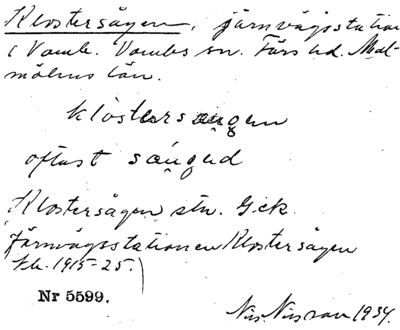 Klostersågen, järnvägsstation
i Vomb. Vombs sn. Färs hd. Mal-
möhus län.
klostersaugen
oftast saugud
Klostersågen stn. G.ek.
Järnvägsstationen Klostersågen
1915-25.)
Nr 5599.
Nils Nilsson 1934.